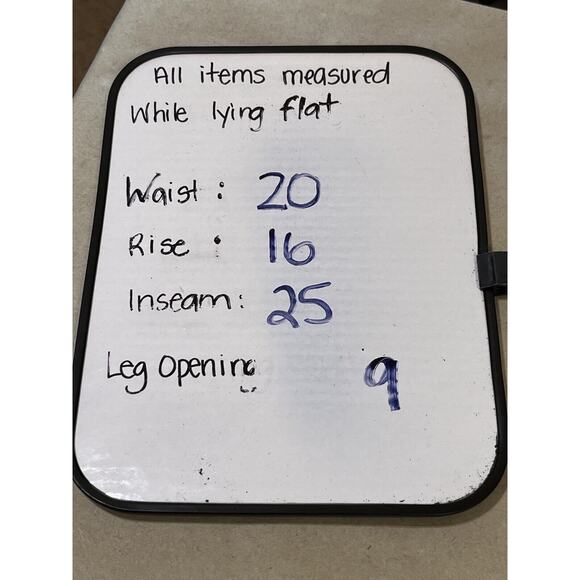 All items measured
While lying flat
Waist: 20
Rise: 16
Inseam: 25
Leg Opening 9